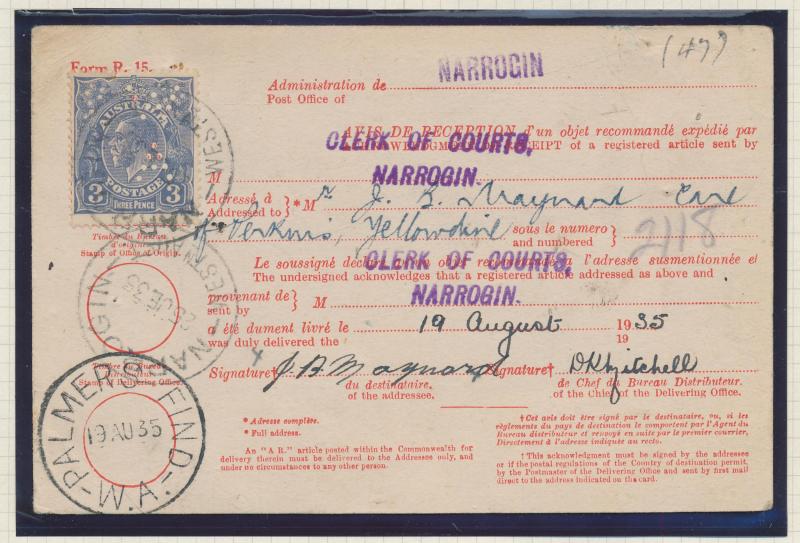 (47)
Form R. 15.
NARROGIN
Administration de
Post Office of
AVIS DE RECEPTION d'un objet recommandé expédié par
ACKNOWLEDGMENT OF RECEIPT of a registered article sent by
CLERK OF COURTS,
NARROGIN.
M
Adressé à
Addressed to
* Mr J. B. Maynard Care
of Perkins, Yellowdine
sous le numero
and numbered
2118
Le soussigné déclare qu'un objet recommandé à l'adresse susmentionnée et
The undersigned acknowledges that a registered article addressed as above and
CLERK OF COURTS,
NARROGIN.
provenant de
sent by
M
a été dument livré le 19 August 1935
was duly delivered the 19
Signature† J B Maynard Signature†
du destinataire. de Chef du Bureau Distributeur.
of the addressee. of the Chief of the Delivering Office.
* Adresse complète.
* Full address.
An "A R." article posted within the Commonwealth for
delivery therein must be delivered to the Addressee only, and
under no circumstances to any other person.
† Cet avis doit être signé par le destinataire, ou, si les
règlements du pays de destination le comportent par l'Agent du
Bureau distributeur et renvoyé en suite par le premier courrier,
Directement à l'adresse indiquée au recto.
† This acknowledgment must be signed by the addressee
or if the postal regulations of the Country of destination permit,
by the Postmaster of the Delivering Office and sent by first mail
direct to the address indicated on the card.
AUSTRALIA
3 POSTAGE 3
THREE PENCE
Timbre du Bureau
d'origine.
Stamp of Office of Origin.
NARROGIN
26 JE 35
WESTN
Timbre du Bureau
distributeur.
Stamp of Delivering Office.
PALMER'S FIND
19 AU 35
W.A.